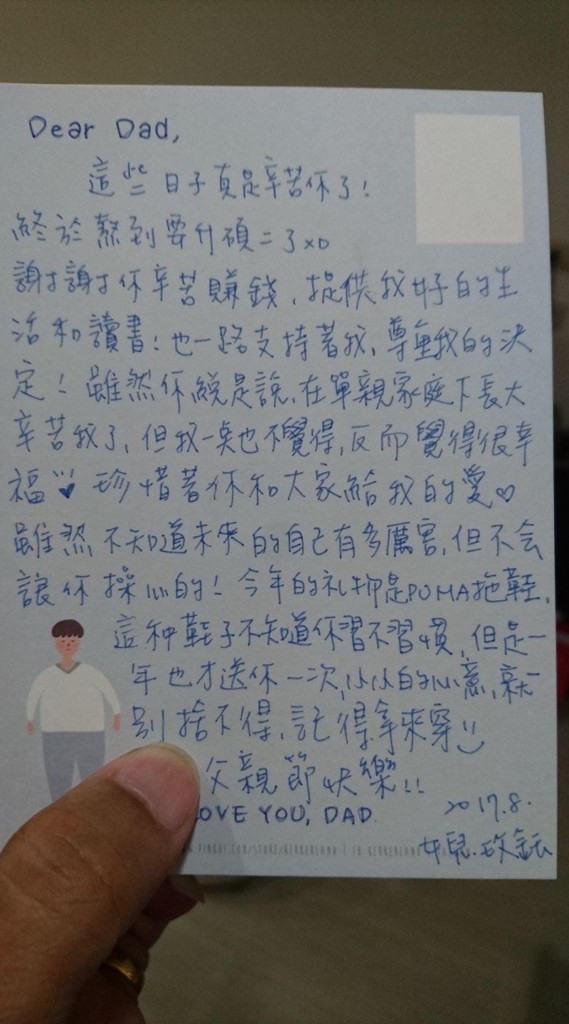 Dear Dad,
這些日子真是辛苦你了!
終於熬到要升碩二了xD
謝謝你辛苦賺錢、提供我好的生
活和讀書!也一路支持著我,尊重我的決
定!雖然你總是說,在單親家庭下長大
辛苦我了,但我一點也不覺得,反而覺得很幸
福♥珍惜著你和大家給我的愛♡
雖然不知道未來的自己有多厲害,但不会
讓你操心的!今年的礼物是PUMA拖鞋,
這种鞋子不知道你習不習慣,但是一
年也才送你一次,小小的心意,就
別捨不得,記得拿來穿
父親節快樂!!
OVE YOU, DAD.
2017.8.
女兒.玫鈺